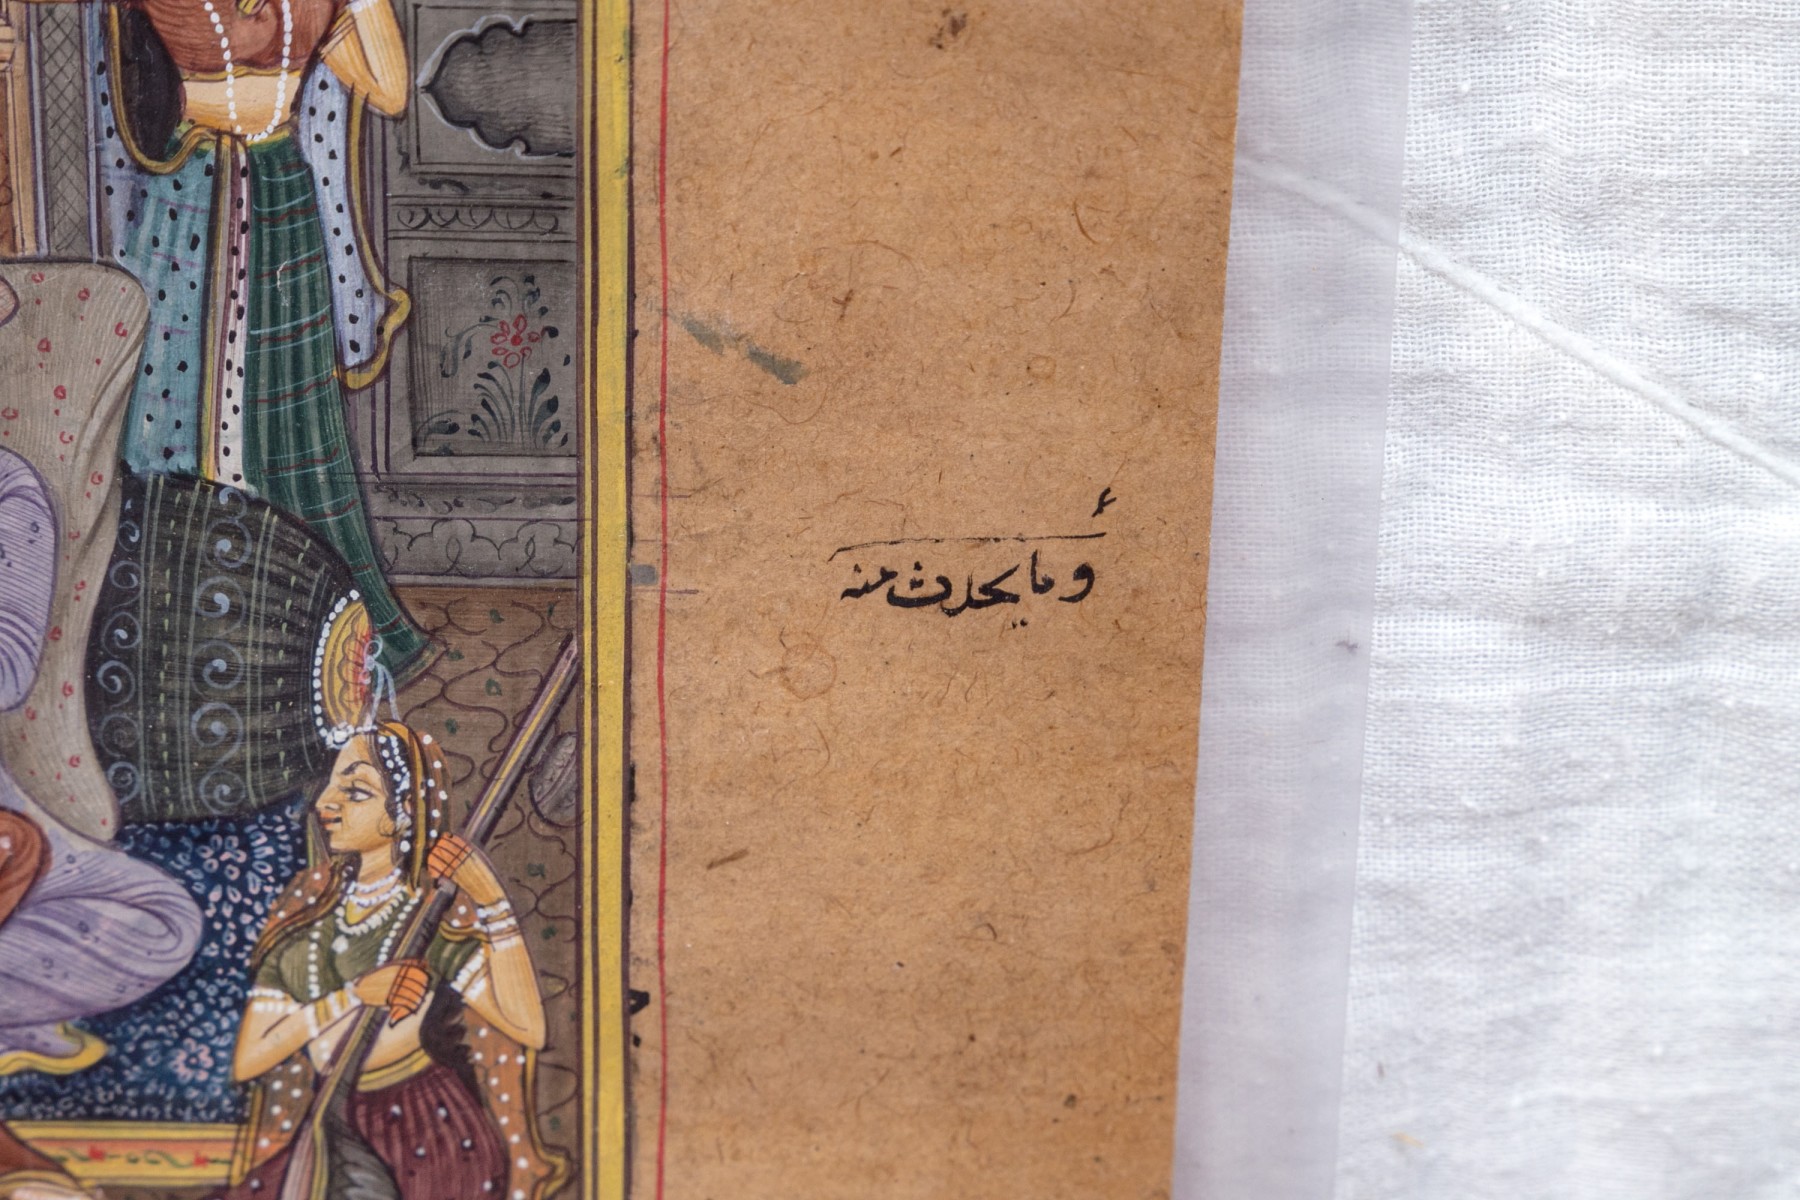 وما يحدث منه